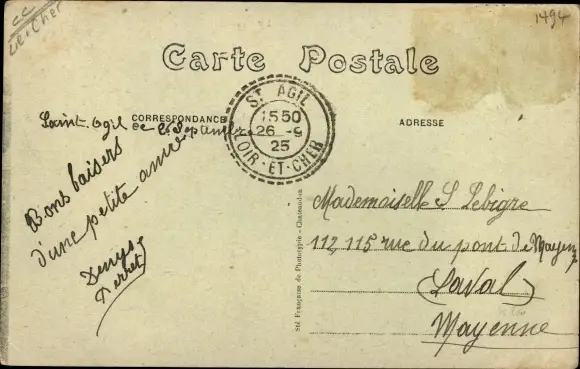 CC
Loir-et-Cher
1494
Carte Postale
CORRESPONDANCE
ADRESSE
ST AGIL
15 50
26 - 9
25
LOIR-ET-CHER
Saint-Agil
ce 26 Septembre
Bons baisers
d'une petite amie
Denyse
Mademoiselle S Lebigre
112 115 rue du pont de Mayenne
Laval
Mayenne
Sté Française de Phototypie - Chateaudun